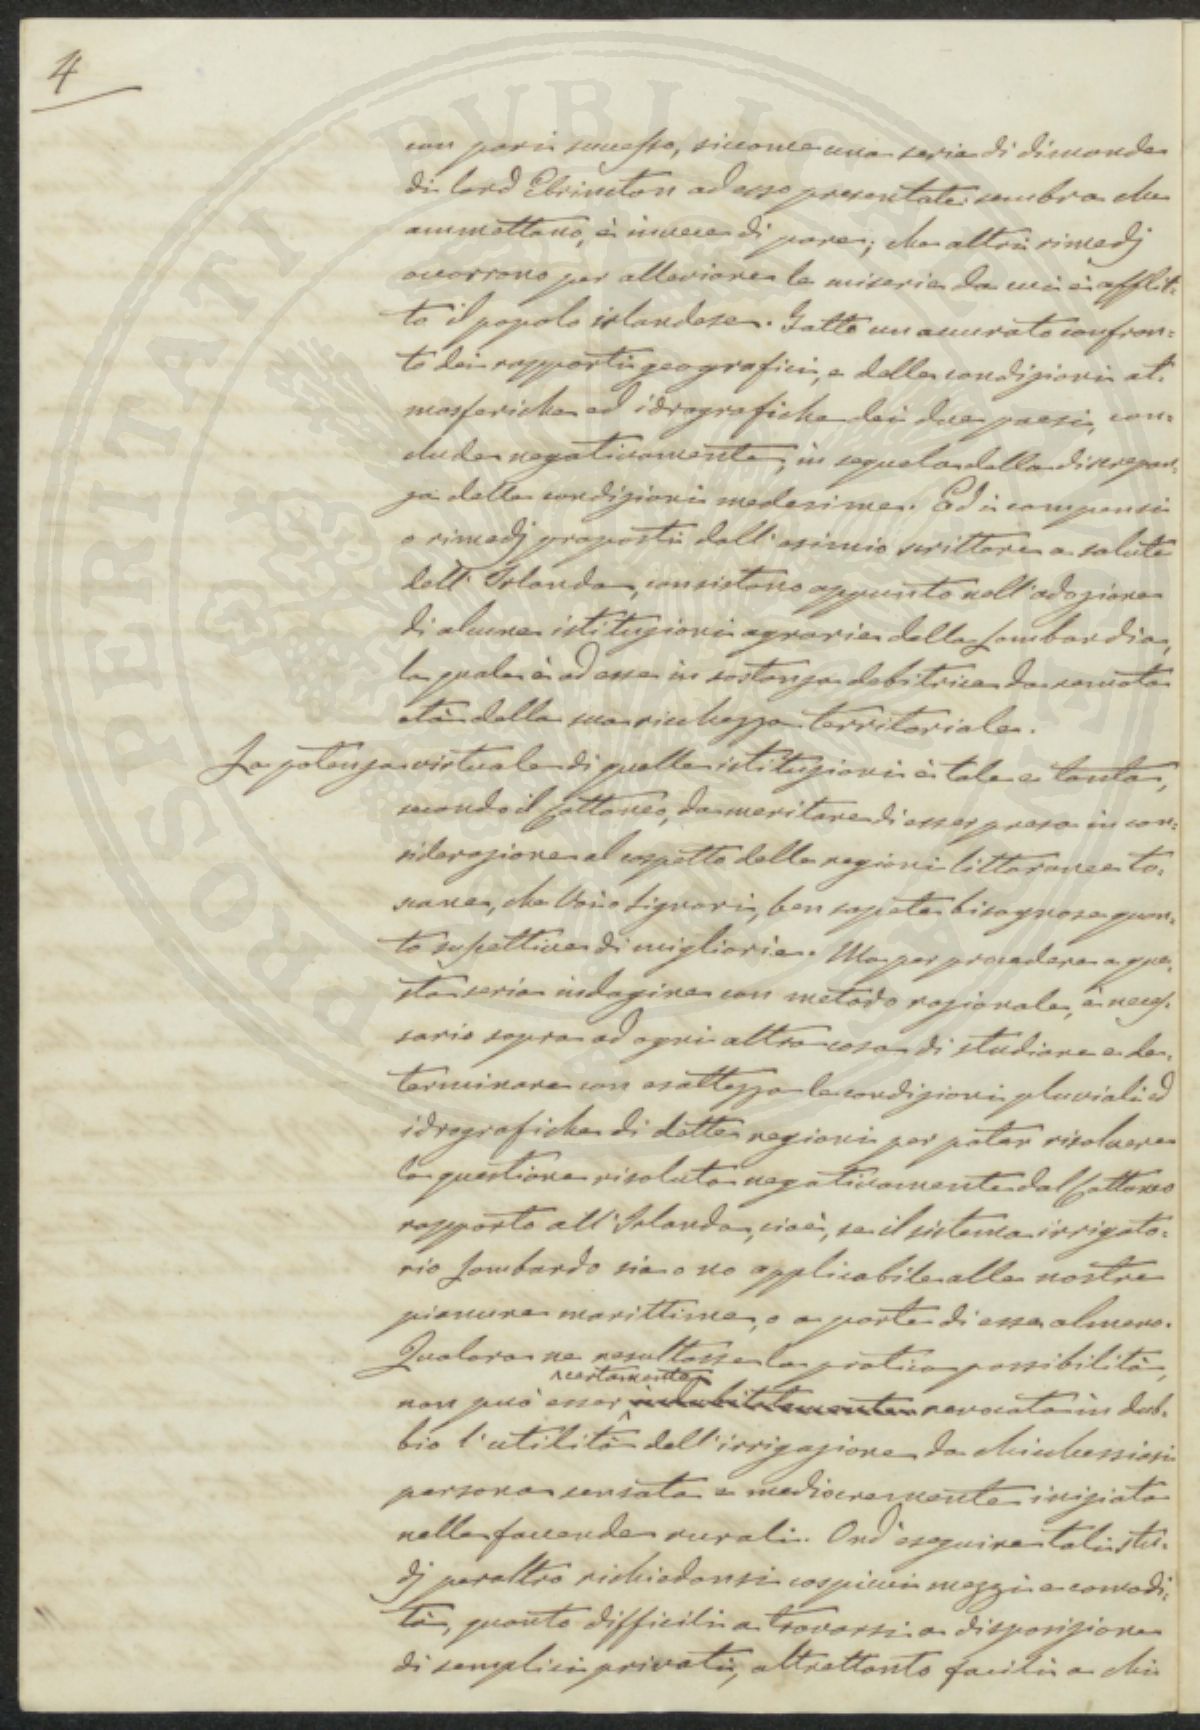 4
con pari successo, siccome una serie di dimande
di lord Ebrinton ad esso presentate sembra che
ammettano, è invece di parere, che altri rimedj
occorrono per alleviare le miserie da cui è afflit-
to il popolo irlandese. Fatto un accurato confron-
to dei rapporti geografici, e delle condizioni at-
mosferiche ed idrografiche dei due paesi, con-
clude negativamente, in sequela della discrepan-
za delle condizioni medesime. Ed i compensi
o rimedj proposti dall'esimio scrittore a salute
dell'Irlanda, consistono appunto nell'adozione
di alcune istituzioni agrarie della Lombardia,
la quale è ad esse in sostanza debitrice da remota
età della sua ricchezza territoriale.
La potenza virtuale di quelle istituzioni è tale e tanta,
secondo il Cattaneo, da meritare di esser presa in con-
siderazione al cospetto delle regioni littoranee to-
scane, che Voi o Signori, ben sapete bisognose quan-
to suscettive di migliorie. Ma per procedere a que-
sta seria indagine con metodo razionale, è neces-
sario sopra ad ogni altra cosa di studiare e de-
terminare con esattezza le condizioni pluviali ed
idrografiche di dette regioni per poter risolvere
la questione risoluta negativamente dal Cattaneo
rapporto all'Irlanda, cioè, se il sistema irrigato-
rio Lombardo sia o no applicabile alle nostre
pianure marittime, o a parte di esse almeno.
Qualora ne resultasse la pratica possibilità,
certamente
non può esser indubitatamente revocata in dub-
bio l'utilità dell'irrigazione da chicchessiasi
persona sensata e mediocremente iniziata
nelle faccende rurali. Ond'eseguire tali stu-
dj peraltro richiedonsi cospicui mezzi e comodi-
tà, quanto difficili a trovarsi a disposizione
di semplici privati, altrettanto facili a chi
PROSPERITATI PUBLICAE